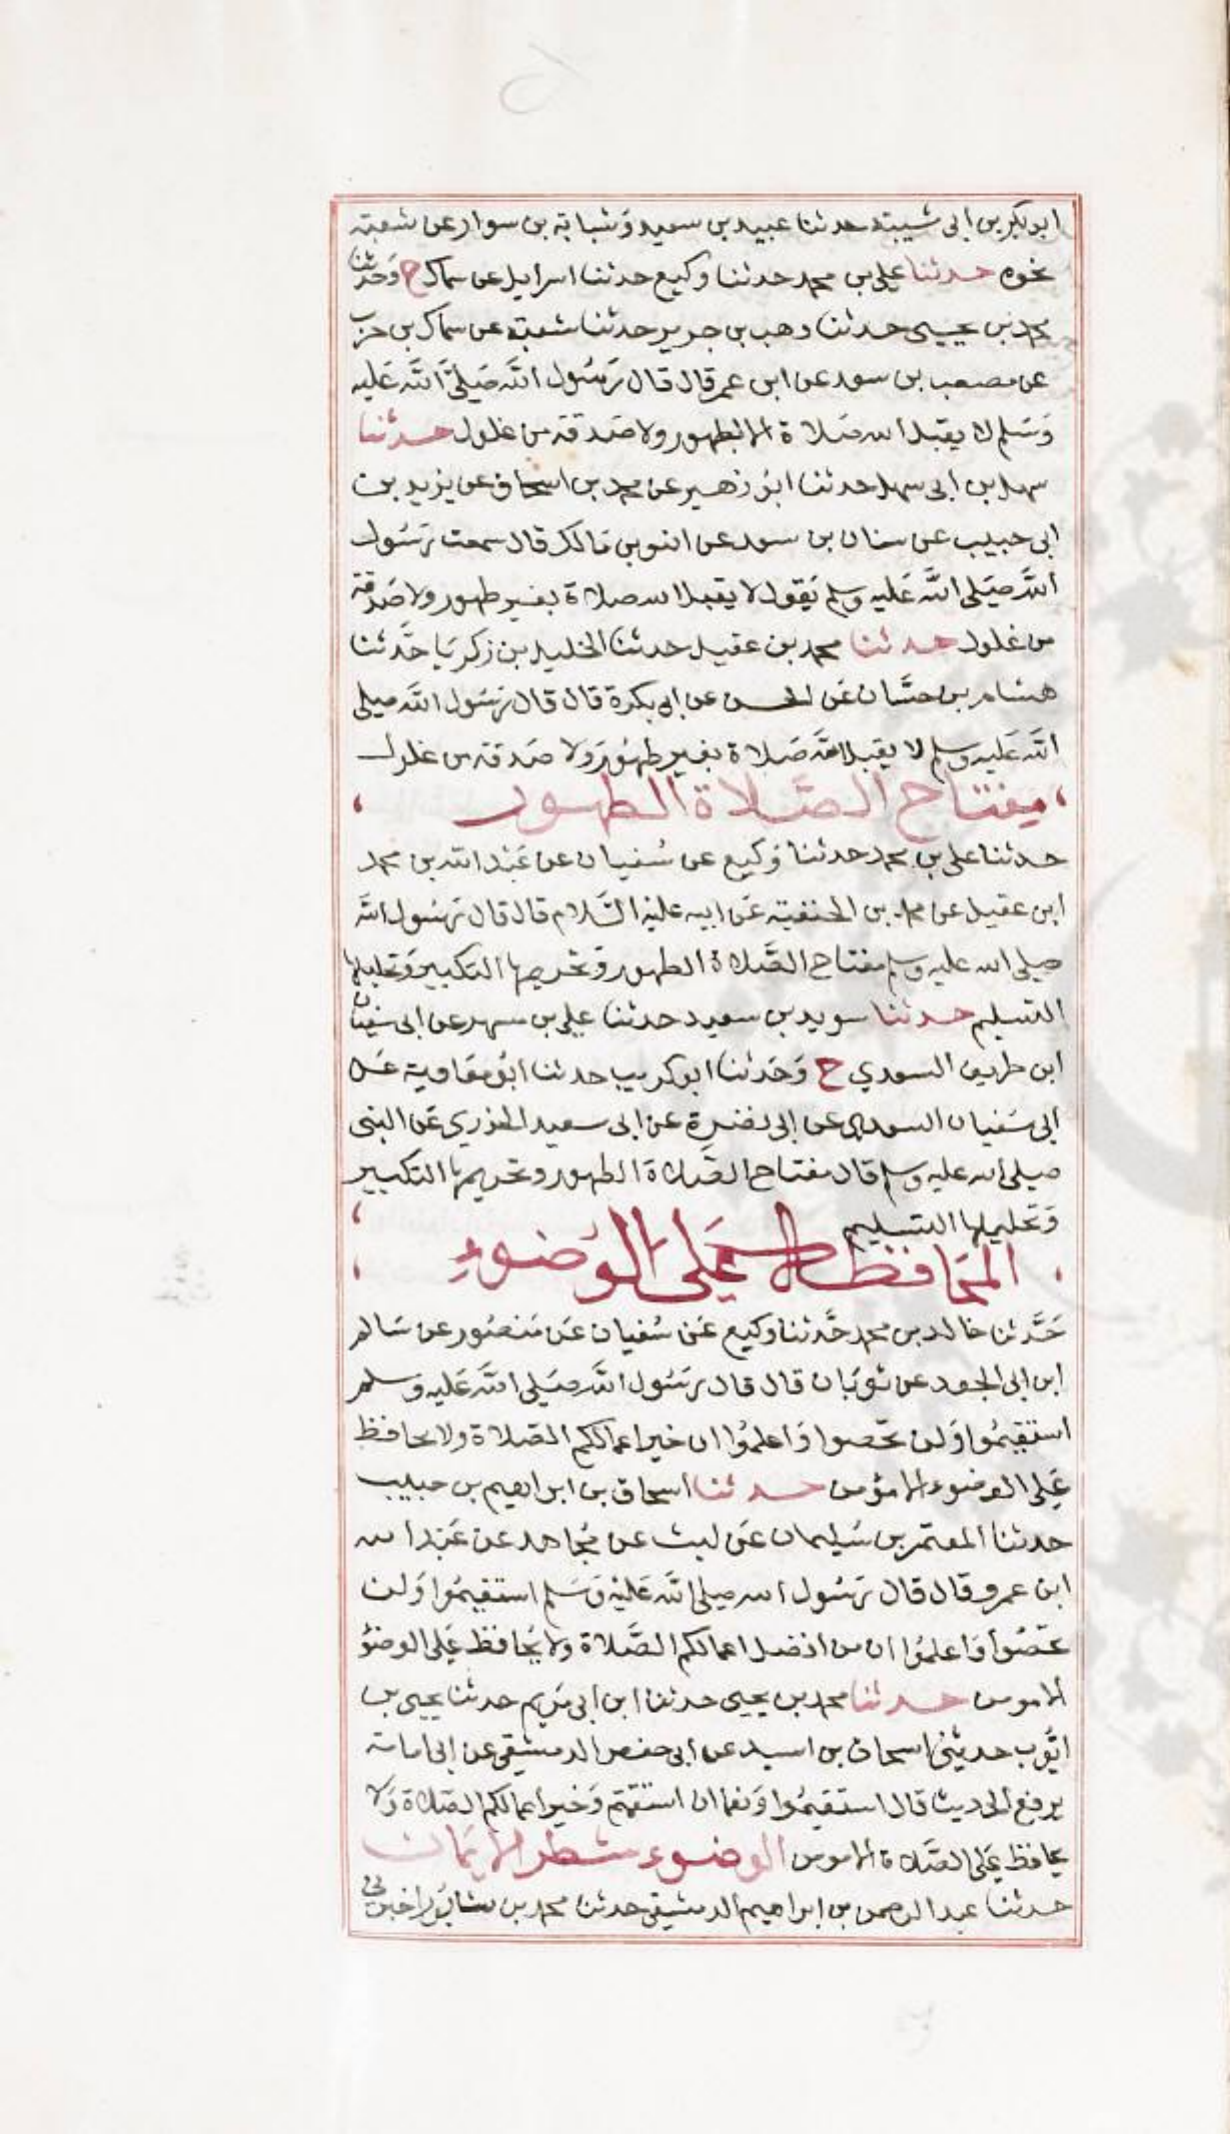 ابو بكر بن ابى شيبة حدثنا عبيد بن سعيد وشبابة بن سوار عن شعبة
نحوه حدثنا على بن محمد حدثنا وكيع حدثنا اسرايل عن سماك ح وحدثنا
محمد بن يحيى حدثنا وهب بن جرير حدثنا شعبة عن سماك بن حرب
عن مصعب بن سعد عن ابن عمر قال قال رسول الله صلى الله عليه
وسلم لا يقبل الله صلاة الا بطهور ولا صدقة من غلول حدثنا
سهل بن ابى سهل حدثنا ابو زهير عن محمد بن اسحاق عن يزيد بن
ابى حبيب عن سنان بن سعد عن انس بن مالك قال سمعت رسول
الله صلى الله عليه وسلم يقول لا يقبل الله صلاة بغير طهور ولا صدقة
من غلول حدثنا محمد بن عقيل حدثنا الخليل بن زكريا حدثنا
هشام بن حسان عن الحسن عن ابى بكرة قال قال رسول الله صلى
الله عليه وسلم لا يقبل الله صلاة بغير طهور ولا صدقة من غلول
مفتاح الصلاة الطهور
حدثنا على بن محمد حدثنا وكيع عن سفيان عن عبد الله بن محمد
ابن عقيل عن محمد بن الحنفية عن ابيه عليه السلام قال قال رسول الله
صلى الله عليه وسلم مفتاح الصلاة الطهور وتحريمها التكبير وتحليلها
التسليم حدثنا سويد بن سعيد حدثنا على بن مسهر عن ابى سفيان
ابن طريف السعدي ح وحدثنا ابو كريب حدثنا ابو معاوية عن
ابى سفيان السعدي عن ابى نضرة عن ابى سعيد الخدري عن النبى
صلى الله عليه وسلم قال مفتاح الصلاة الطهور وتحريمها التكبير
وتحليلها التسليم
المحافظة على الوضوء
حدثنا خالد بن محمد حدثنا وكيع عن سفيان عن منصور عن سالم
ابن ابى الجعد عن ثوبان قال قال رسول الله صلى الله عليه وسلم
استقيموا ولن تحصوا واعلموا ان خير اعمالكم الصلاة ولا يحافظ
على الوضوء الا مؤمن حدثنا اسحاق بن ابراهيم بن حبيب
حدثنا المعتمر بن سليمان عن ليث عن مجاهد عن عبد الله
ابن عمرو قال قال رسول الله صلى الله عليه وسلم استقيموا ولن
تحصوا واعلموا ان من افضل اعمالكم الصلاة ولا يحافظ على الوضؤ
الا مومن حدثنا محمد بن يحيى حدثنا ابن ابى مريم حدثنا يحيى بن
ايوب حدثنى اسحاق بن اسيد عن ابى حفص الدمشقى عن ابى امامة
يرفع الحديث قال استقيموا ونعما ان استقمتم وخير اعمالكم الصلاة ولا
يحافظ على الصلاة الا مومن الوضوء شطر الايمان
حدثنا عبد الرحمن بن ابراهيم الدمشقى حدثنا محمد بن شابور اخبرنى